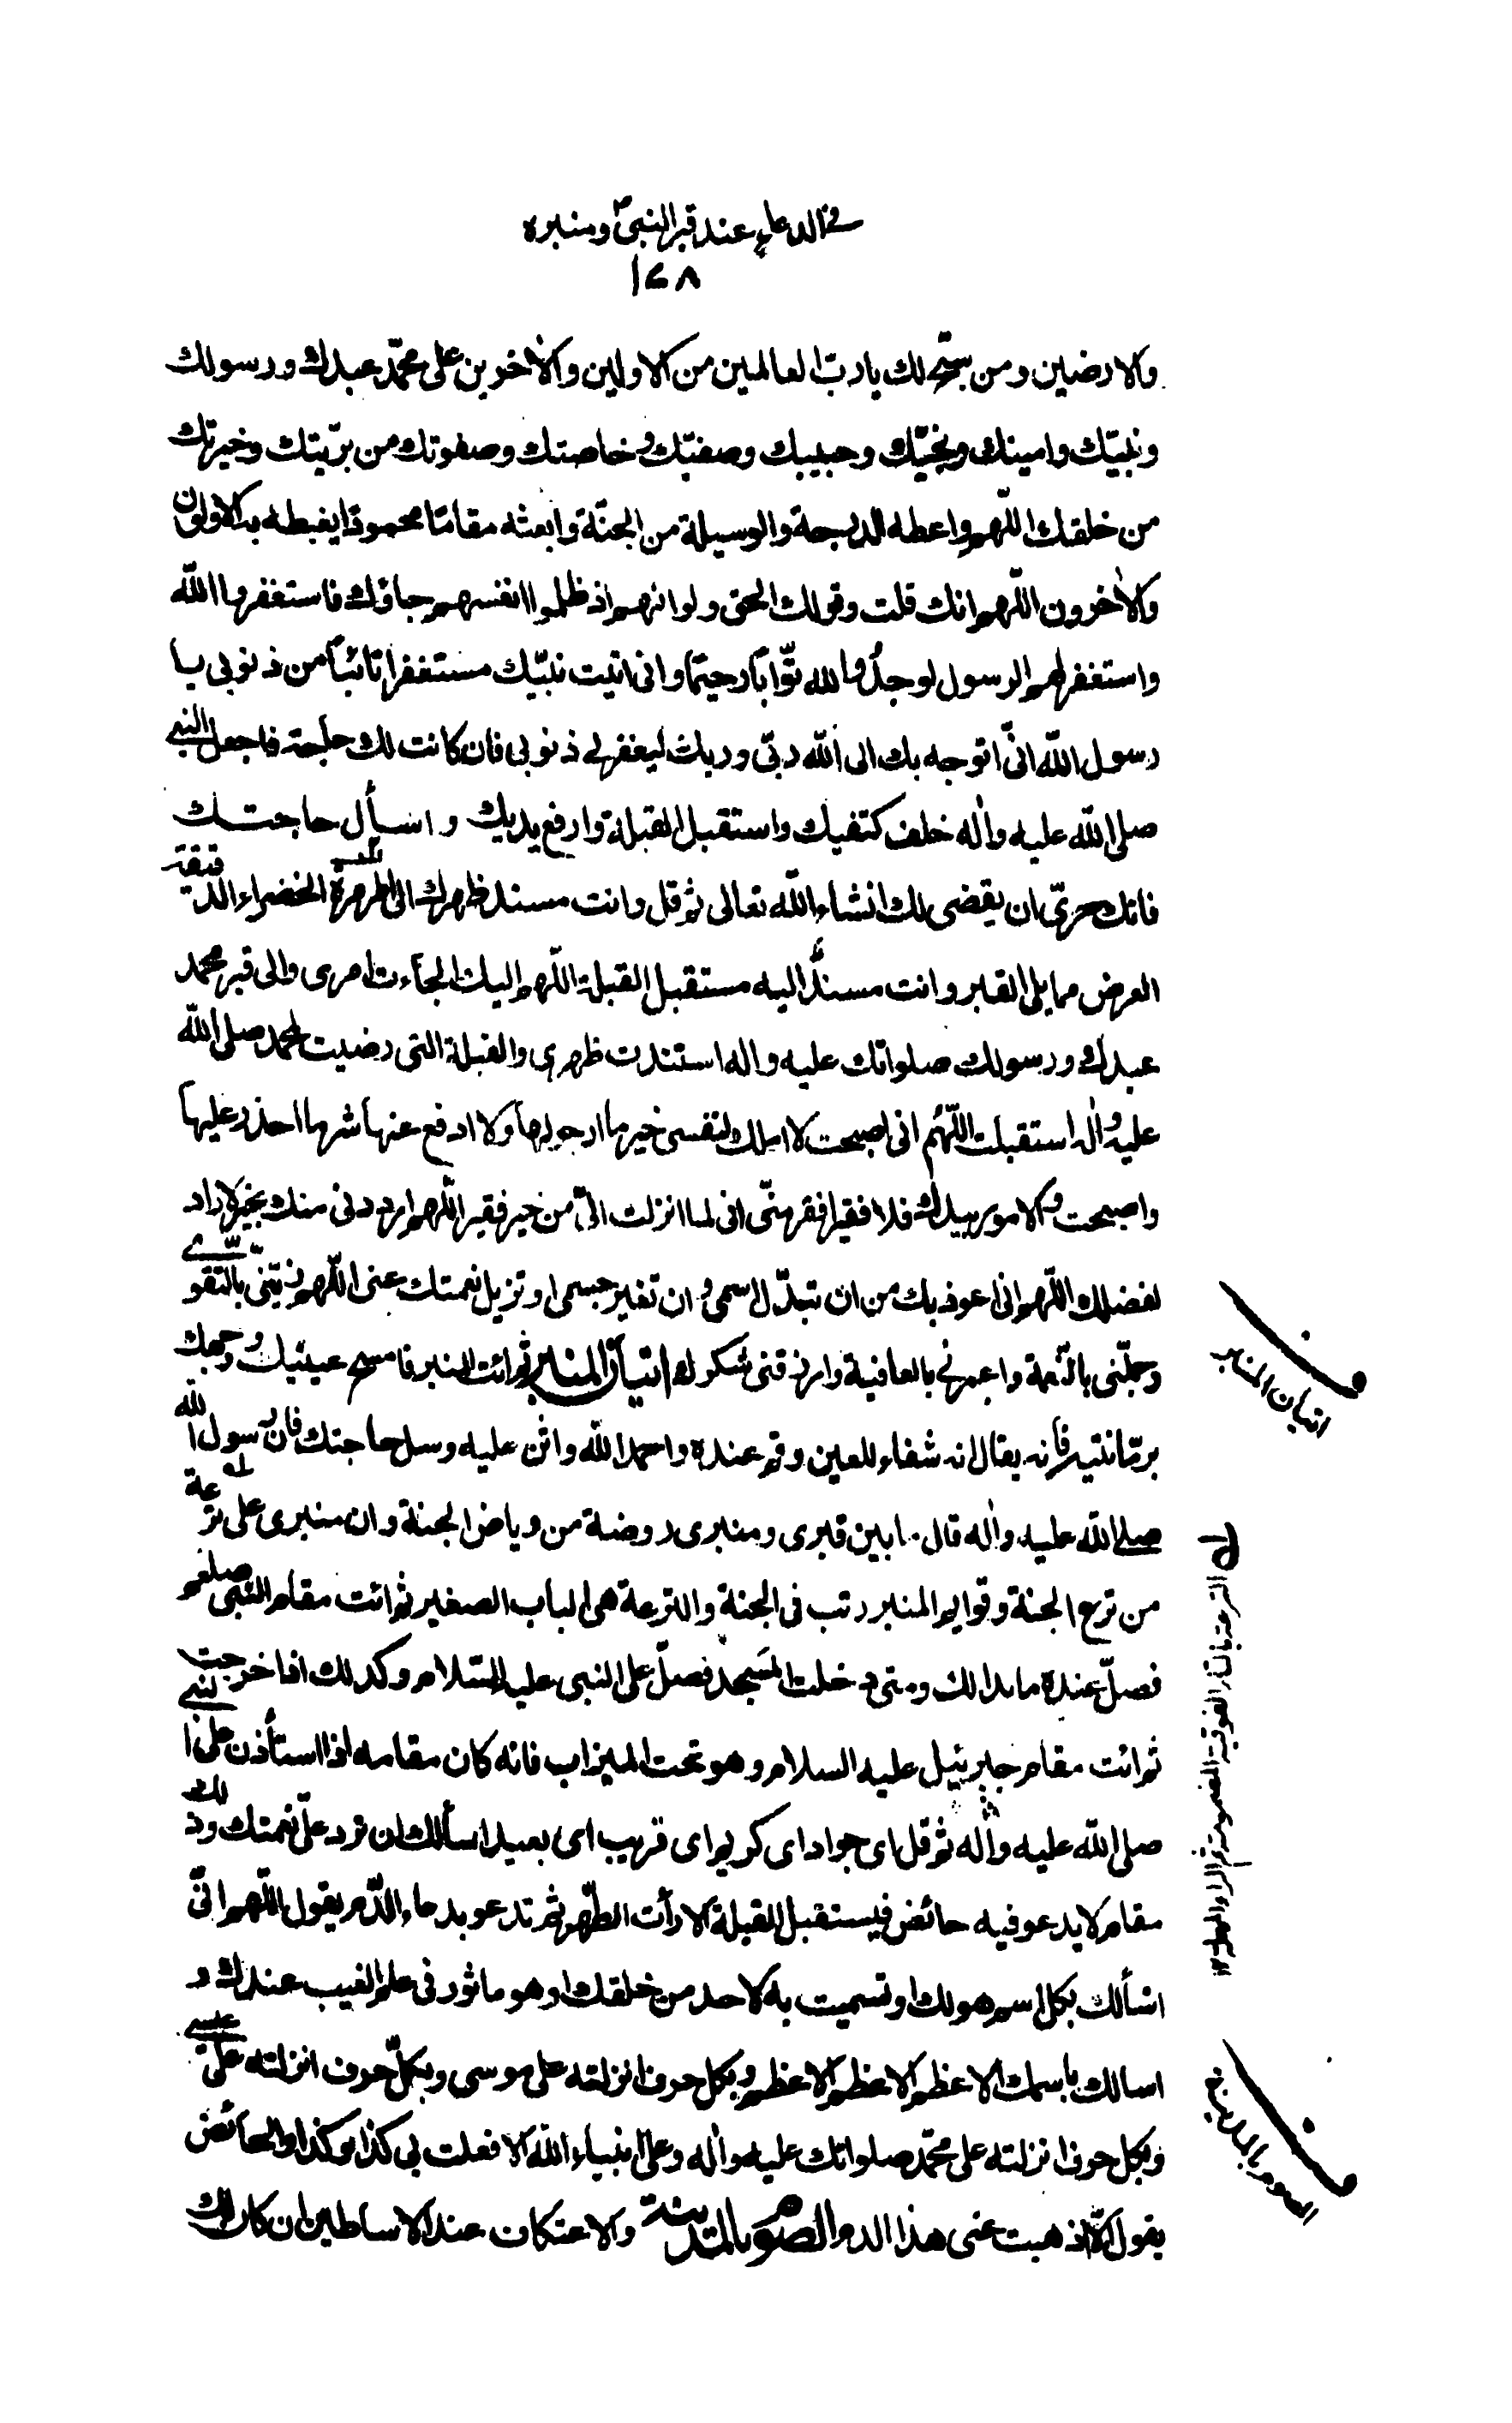 في الدعاء عند قبر النبيّ ومنبره
١٧٨
والارضين ومن سبّح لك يا ربّ العالمين من الاولين والاٰخرين على محمّد عبدك ورسولك
ونبيّك وامينك ونجيّك وحبيبك وصفيّك وخاصتك وصفوتك من بريّتك وخيرتك
من خلقك اللّهم واعطه الدرجة والوسيلة من الجنّة وابعثه مقامًا محمودًا يغبطه به الاولون
والاٰخرون اللّهم انك قلت وقولك الحق ولو انهم اذ ظلموا انفسهم جاؤك فاستغفروا اللّه
واستغفر لهم الرسول لوجدوا اللّه توّابًا رحيمًا وانى اتيت نبيّك مستغفرا تائبًا من ذنوبى يا
رسول اللّه انّى اتوجه بك الى اللّه ربّى وربك ليغفر لى ذنوبى فان كانت لك حاجة فاجعل النبي
صلى اللّه عليه واٰله خلف كتفيك واستقبل القبلة وارفع يديك واسأل حاجتك
فانك حرىّ ان يقضى لك انشاء اللّه تعالى ثم قل وانت مسند ظهرك الى المرمرة الخضراء الدقيقة
العرض مما يلى القبر وانت مسندًا اليه مستقبل القبلة اللّهم اليك الجاءت امرى والى قبر محمد
عبدك ورسولك صلواتك عليه واله استندت ظهرى والقبلة التى رضيت لمحمد صلى اللّه
عليه واٰله استقبلت اللّهم انى اصبحت لا املك لنفسى خير ما ارجو لها ولا ادفع عنها شر ما احذر عليها
واصبحت والامور بيدك فلا فقير افقر منّى انى لما انزلت الىّ من خير فقير اللّهم ارددنى منك بخير لا رادّ
لفضلك اللّهم انى اعوذ بك من ان تبدّل اسمى وان تغير جسمى او تزيل نعمتك عنى اللّهم زيّنّى بالتقوى
وجمّلنى بالنّعمة واعمرنى بالعافية وارزقنى شكرك اتيان المنبر ثم ائت المنبر فامسح عينيك ووجهك
برمّانتيه فانه يقال انه شفاء للعين وقم عنده واحمد اللّه واثن عليه وسل حاجتك فان رسول اللّه
صلى اللّه عليه واٰله قال ما بين قبرى ومنبرى روضة من رياض الجنة وان منبرى على ترعة
من ترع الجنة وقوايم المنبر رتب فى الجنة والترعة هى الباب الصغير ثم ائت مقام النّبى صلعم
فصلّ عنده ما بدا لك ومتى دخلت المسجد فصلّ على النبى عليه السّلام وكذلك اذا خرجت
ثم ائت مقام جبرئيل عليه السلام وهو تحت الميزاب فانه كان مقامه اذا استأذن على النبي
صلى اللّه عليه واٰله ثم قل اى جواد اى كريم اى قريب اى بعيد اسألك ان ترد علىّ نعمتك وذلك
مقام لا يدعو فيه حائض فيستقبل القبلة الا رأت الطّهر ثم تدعو بدعاء الدّم يقول اللّهم انّى
اسألك بكل اسم هو لك او تسميت به لاحد من خلقك او هو ماثور فى علم الغيب عندك و
اسالك باسمك الاعظم الاعظم الاعظم وبكل حرف انزلته على موسى وبكلّ حرف انزلته على عيسى
وبكل حرف انزلته على محمّد صلواتك عليه واٰله وعلى انبياء اللّه الا فعلت بى كذا وكذا والحائض
يقول الّا اذهبت عنى هذا الدم الصّوم بالمدينة والاعتكاف عند الاساطين ان كان لك
اتيان المنبر
له الترعة بالتاء الفوقية المضمومة ثم الراء المهملة ١٢
الصوم بالمدينة